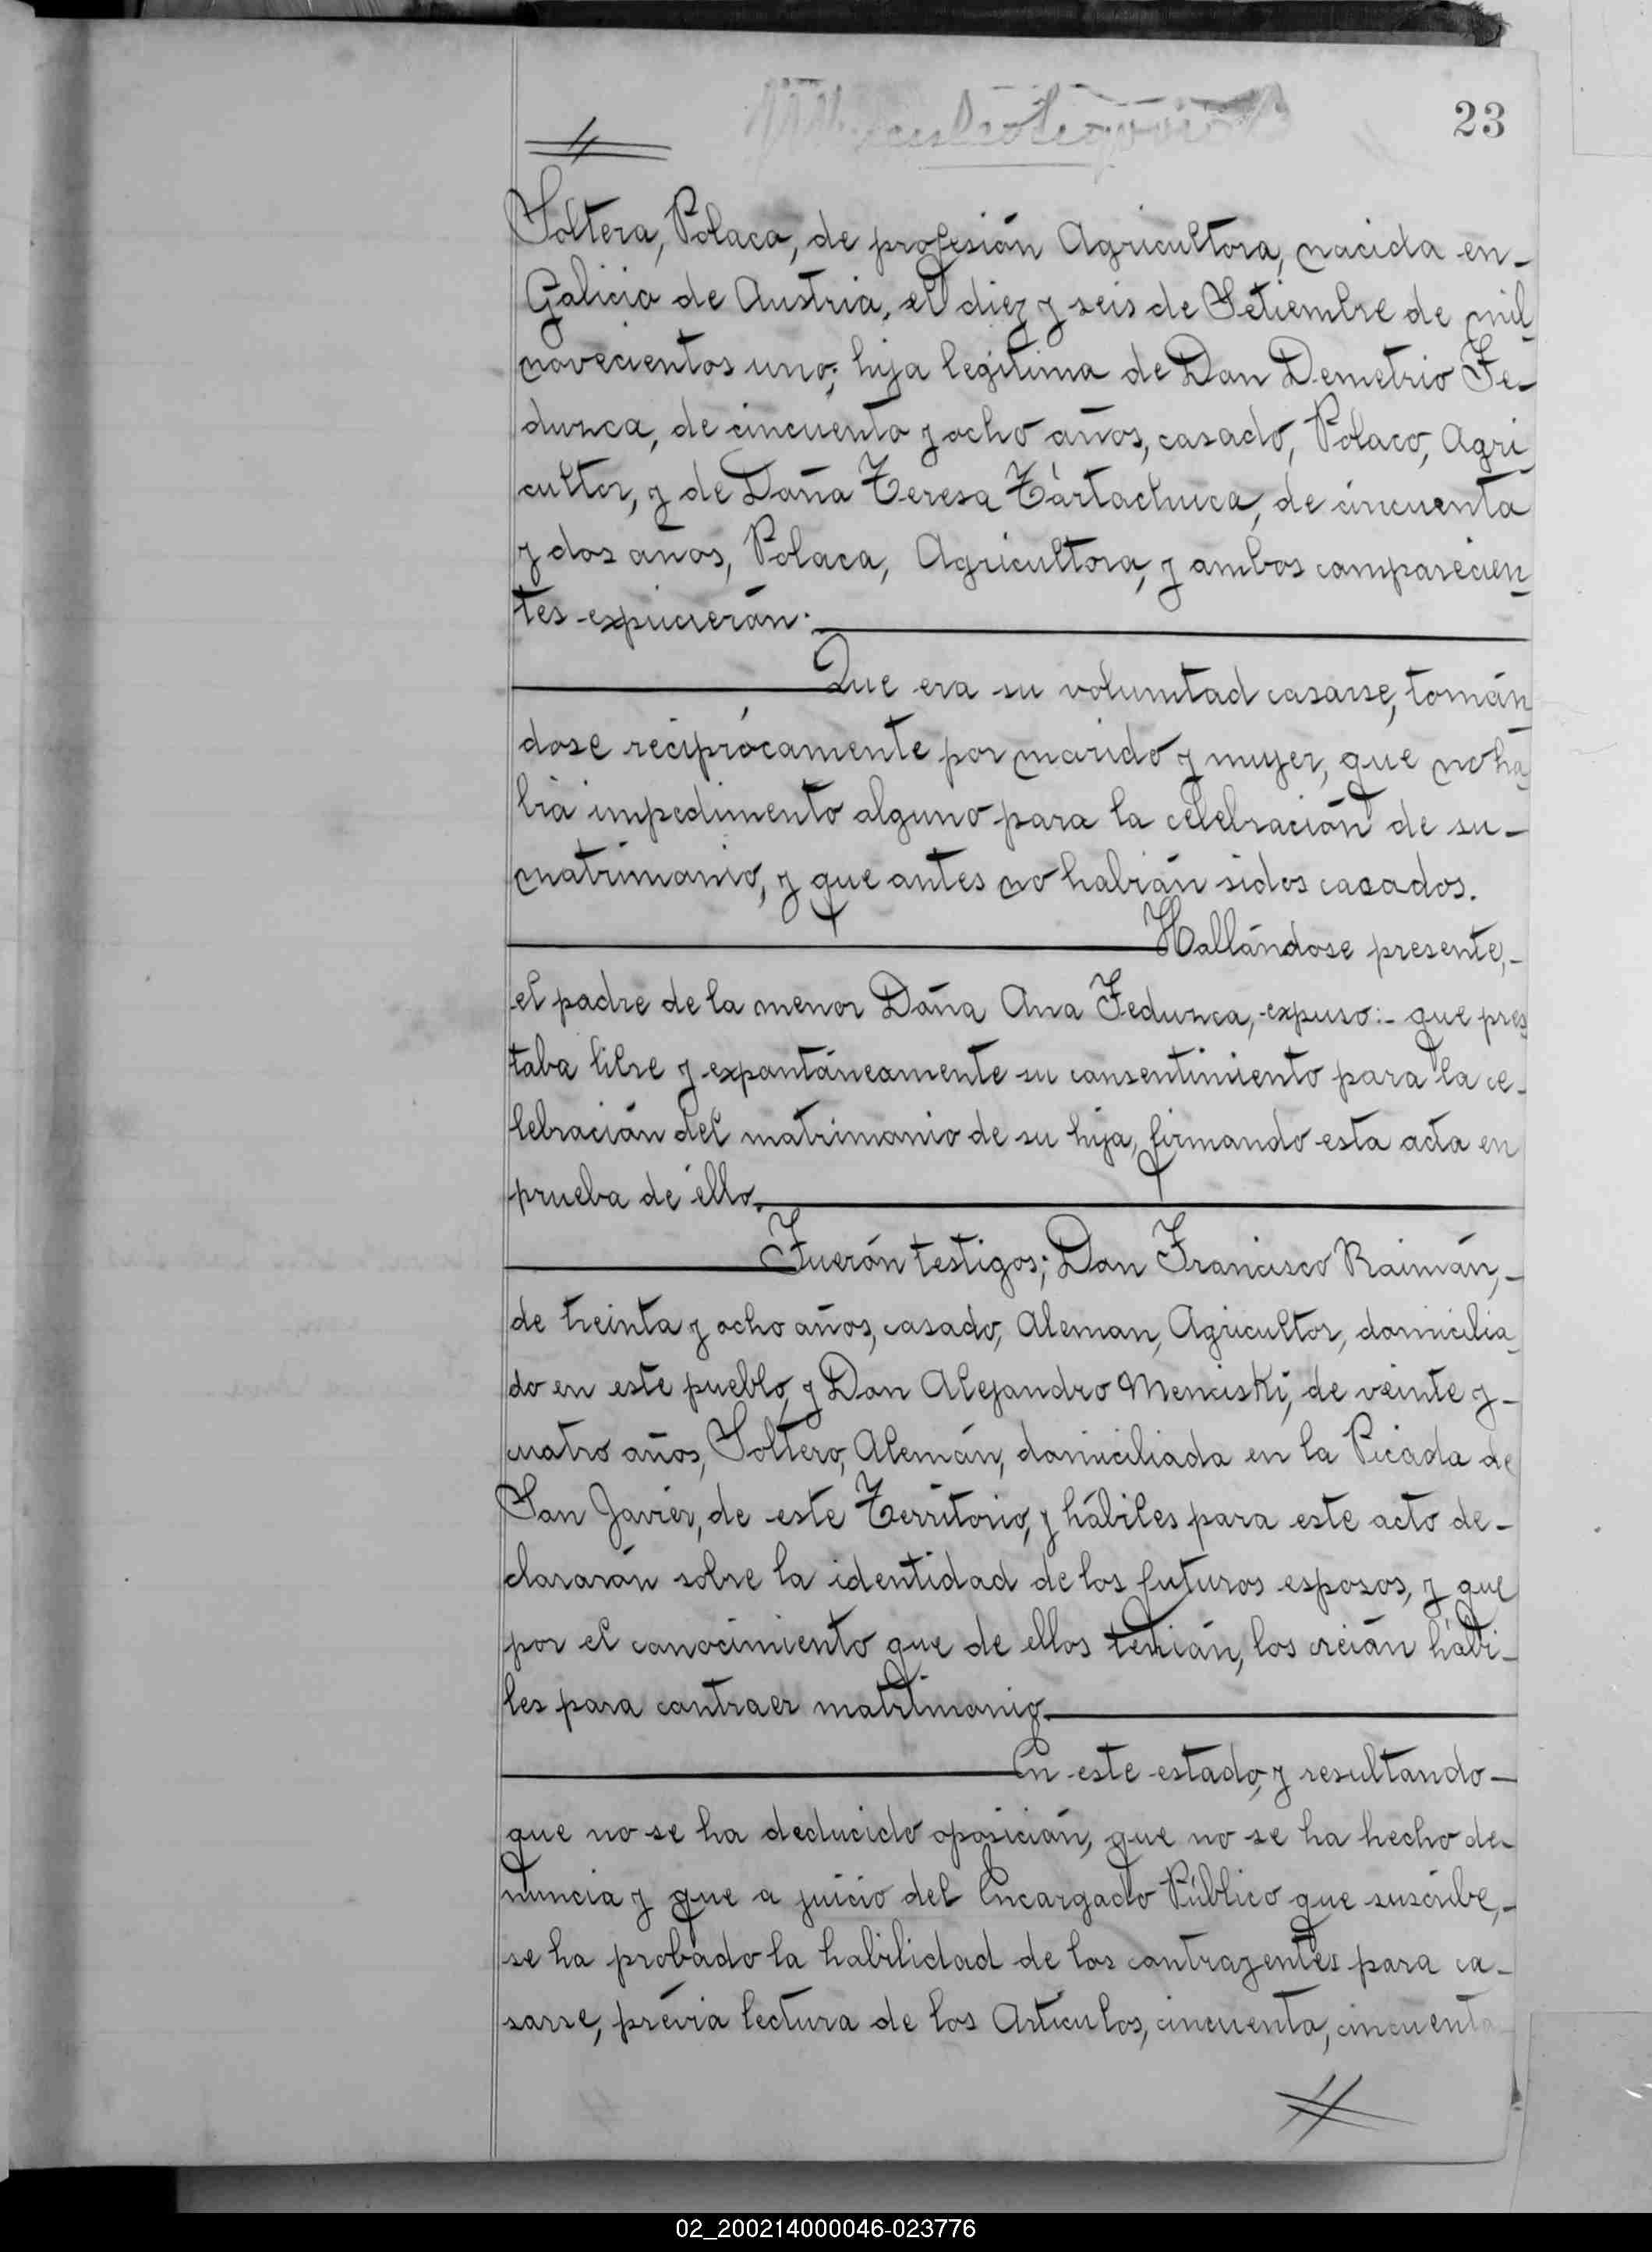 23
Soltera, Polaca, de profesión Agricultora, nacida en-
Galicia de Austria, el diez y seis de Setiembre de mil
novecientos uno; hija legitima de Don Demetrio Fe-
dunca, de cincuenta y ocho años, casado, Polaco, Agri
cultor, y de Doña Teresa Tártachuca, de cincuenta
y dos años, Polaca, Agricultora, y ambos comparecien
tes expucierón:
Que era su voluntad casarse, tomán
dose reciprócamente por marido y mujer, que no ha
bia impedimento alguno para la celebración de su-
matrimonio, y que antes no habián sidos casados.
Hallándose presente,-
el padre de la menor Doña Ana Fedunca, expuso:- que pres
taba libre y expontáneamente su consentimiento para la ce-
lebración del matrimonio de su hija, firmando esta acta en
prueba de éllo.
Fuerón testigos; Don Francisco Raimán,-
de treinta y ocho años, casado, Aleman, Agricultor, domicilia
do en este pueblo, y Don Alejandro Menciski, de veinte y-
cuatro años, Soltero, Alemán, domiciliada en la Picada de
San Javier, de este Territorio, y hábiles para este acto de-
clararón sobre la identidad de los futuros esposos, y que
por el conocimiento que de ellos tenián, los creián hábi-
les para contraer matrimonio.
En este estado, y resultando-
que no se ha deducido oposición, que no se ha hecho de-
nuncia y que a juicio del Encargado Público que suscribe,-
se ha probado la habilidad de los contrayentes para ca-
sarse, prévia lectura de los Articulos, cincuenta, cincuenta
02_200214000046-023776